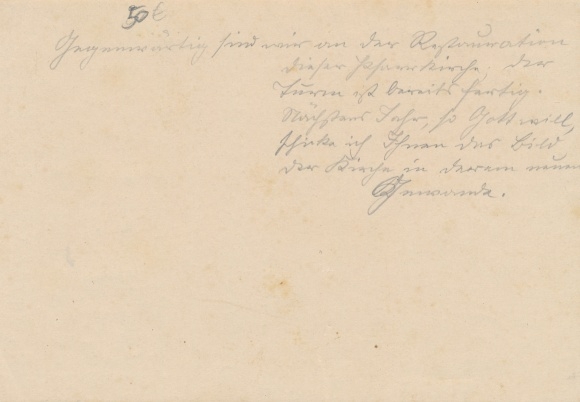 50 €
Gegenwärtig sind wir an der Restauration
dieser Pfarrkirche. Der
Turm ist bereits fertig.
Nächstes Jahr, so Gott will,
schicke ich Ihnen das Bild
der Kirche in derem neuen
Gewande.